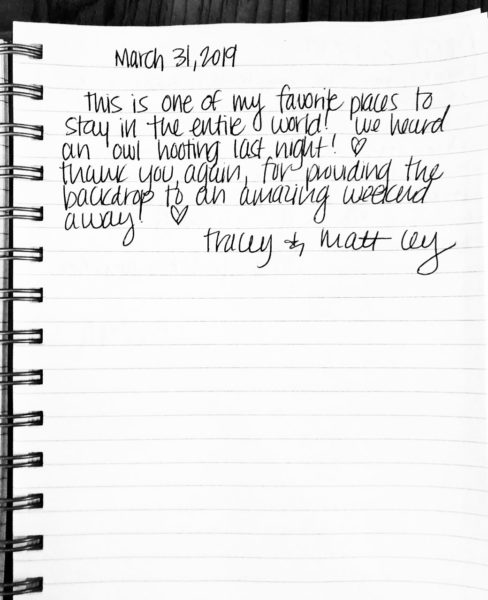 March 31, 2019
This is one of my favorite places to
stay in the entire world! We heard
an owl hooting last night! ♡
Thank you again, for providing the
backdrop to an amazing weekend
away! ♡
Tracey & Matt Cey